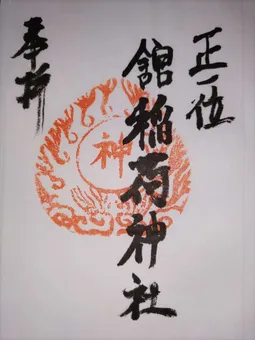 正一位
舘稲荷神社
奉拝
神